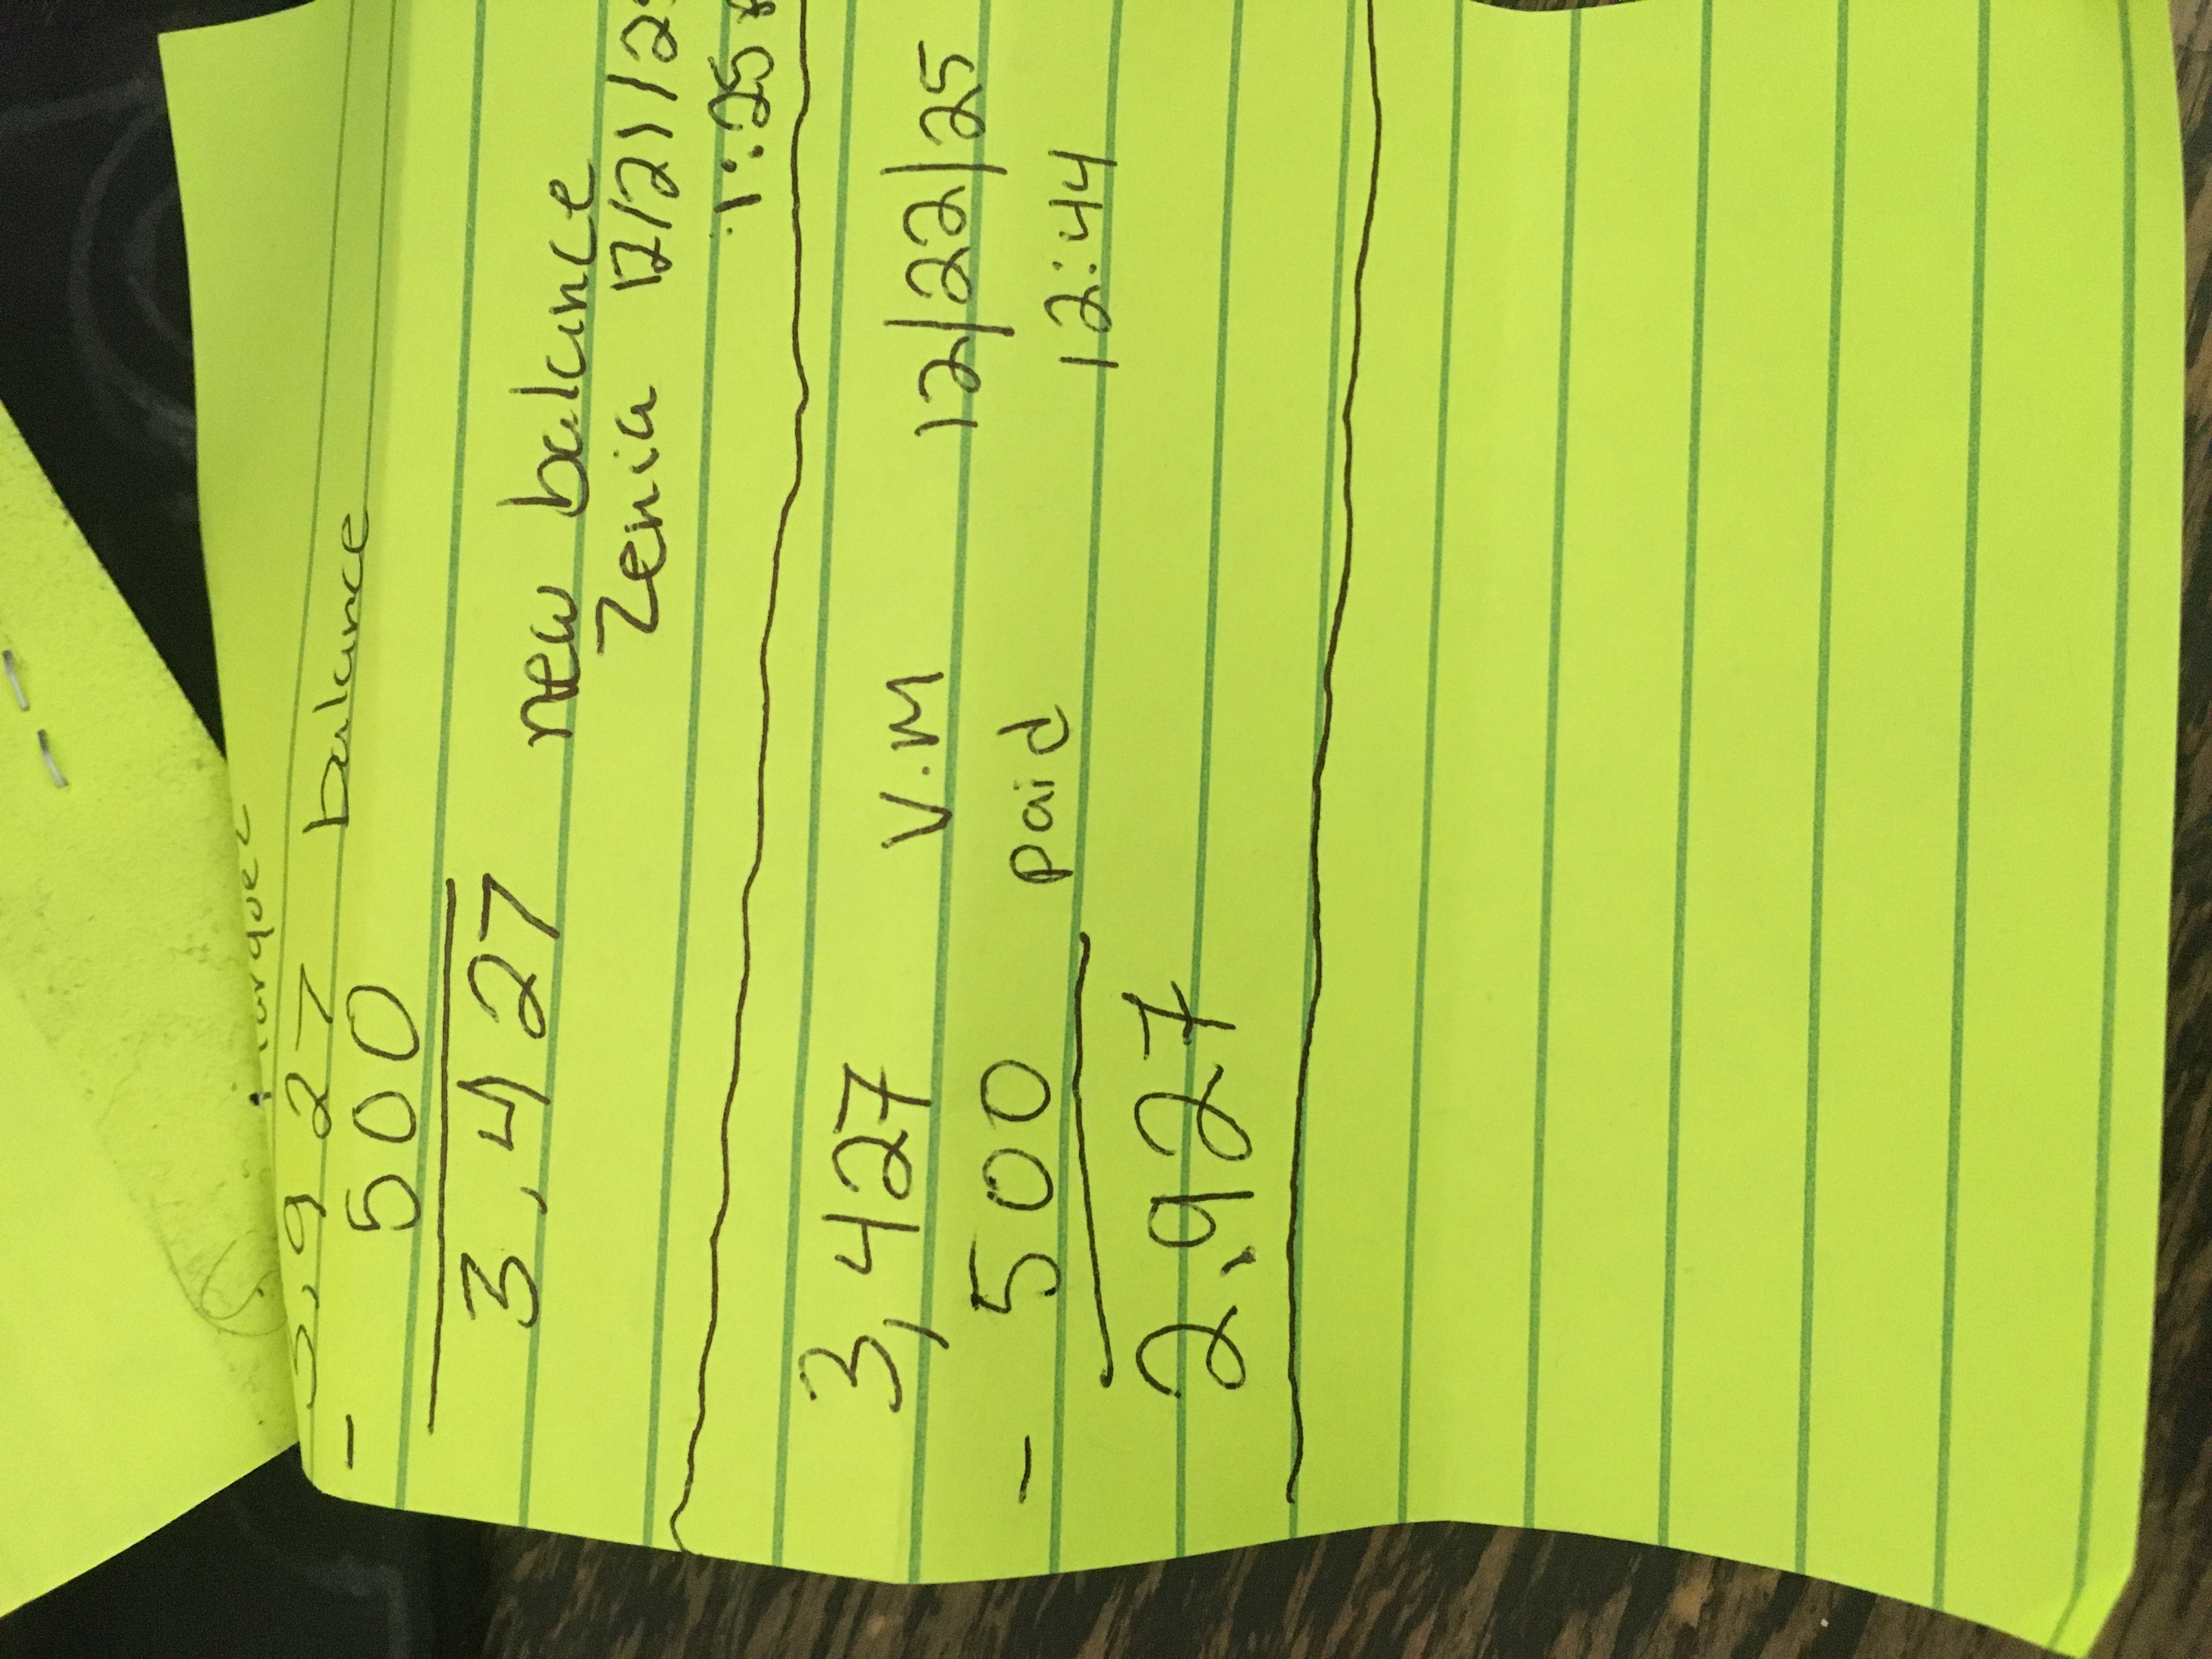 3,927 balance
- 500
3,427 new balance
Zenia 12/21/2
1:25
3,427 V.M 12/22/25
- 500 paid 12:44
2,927